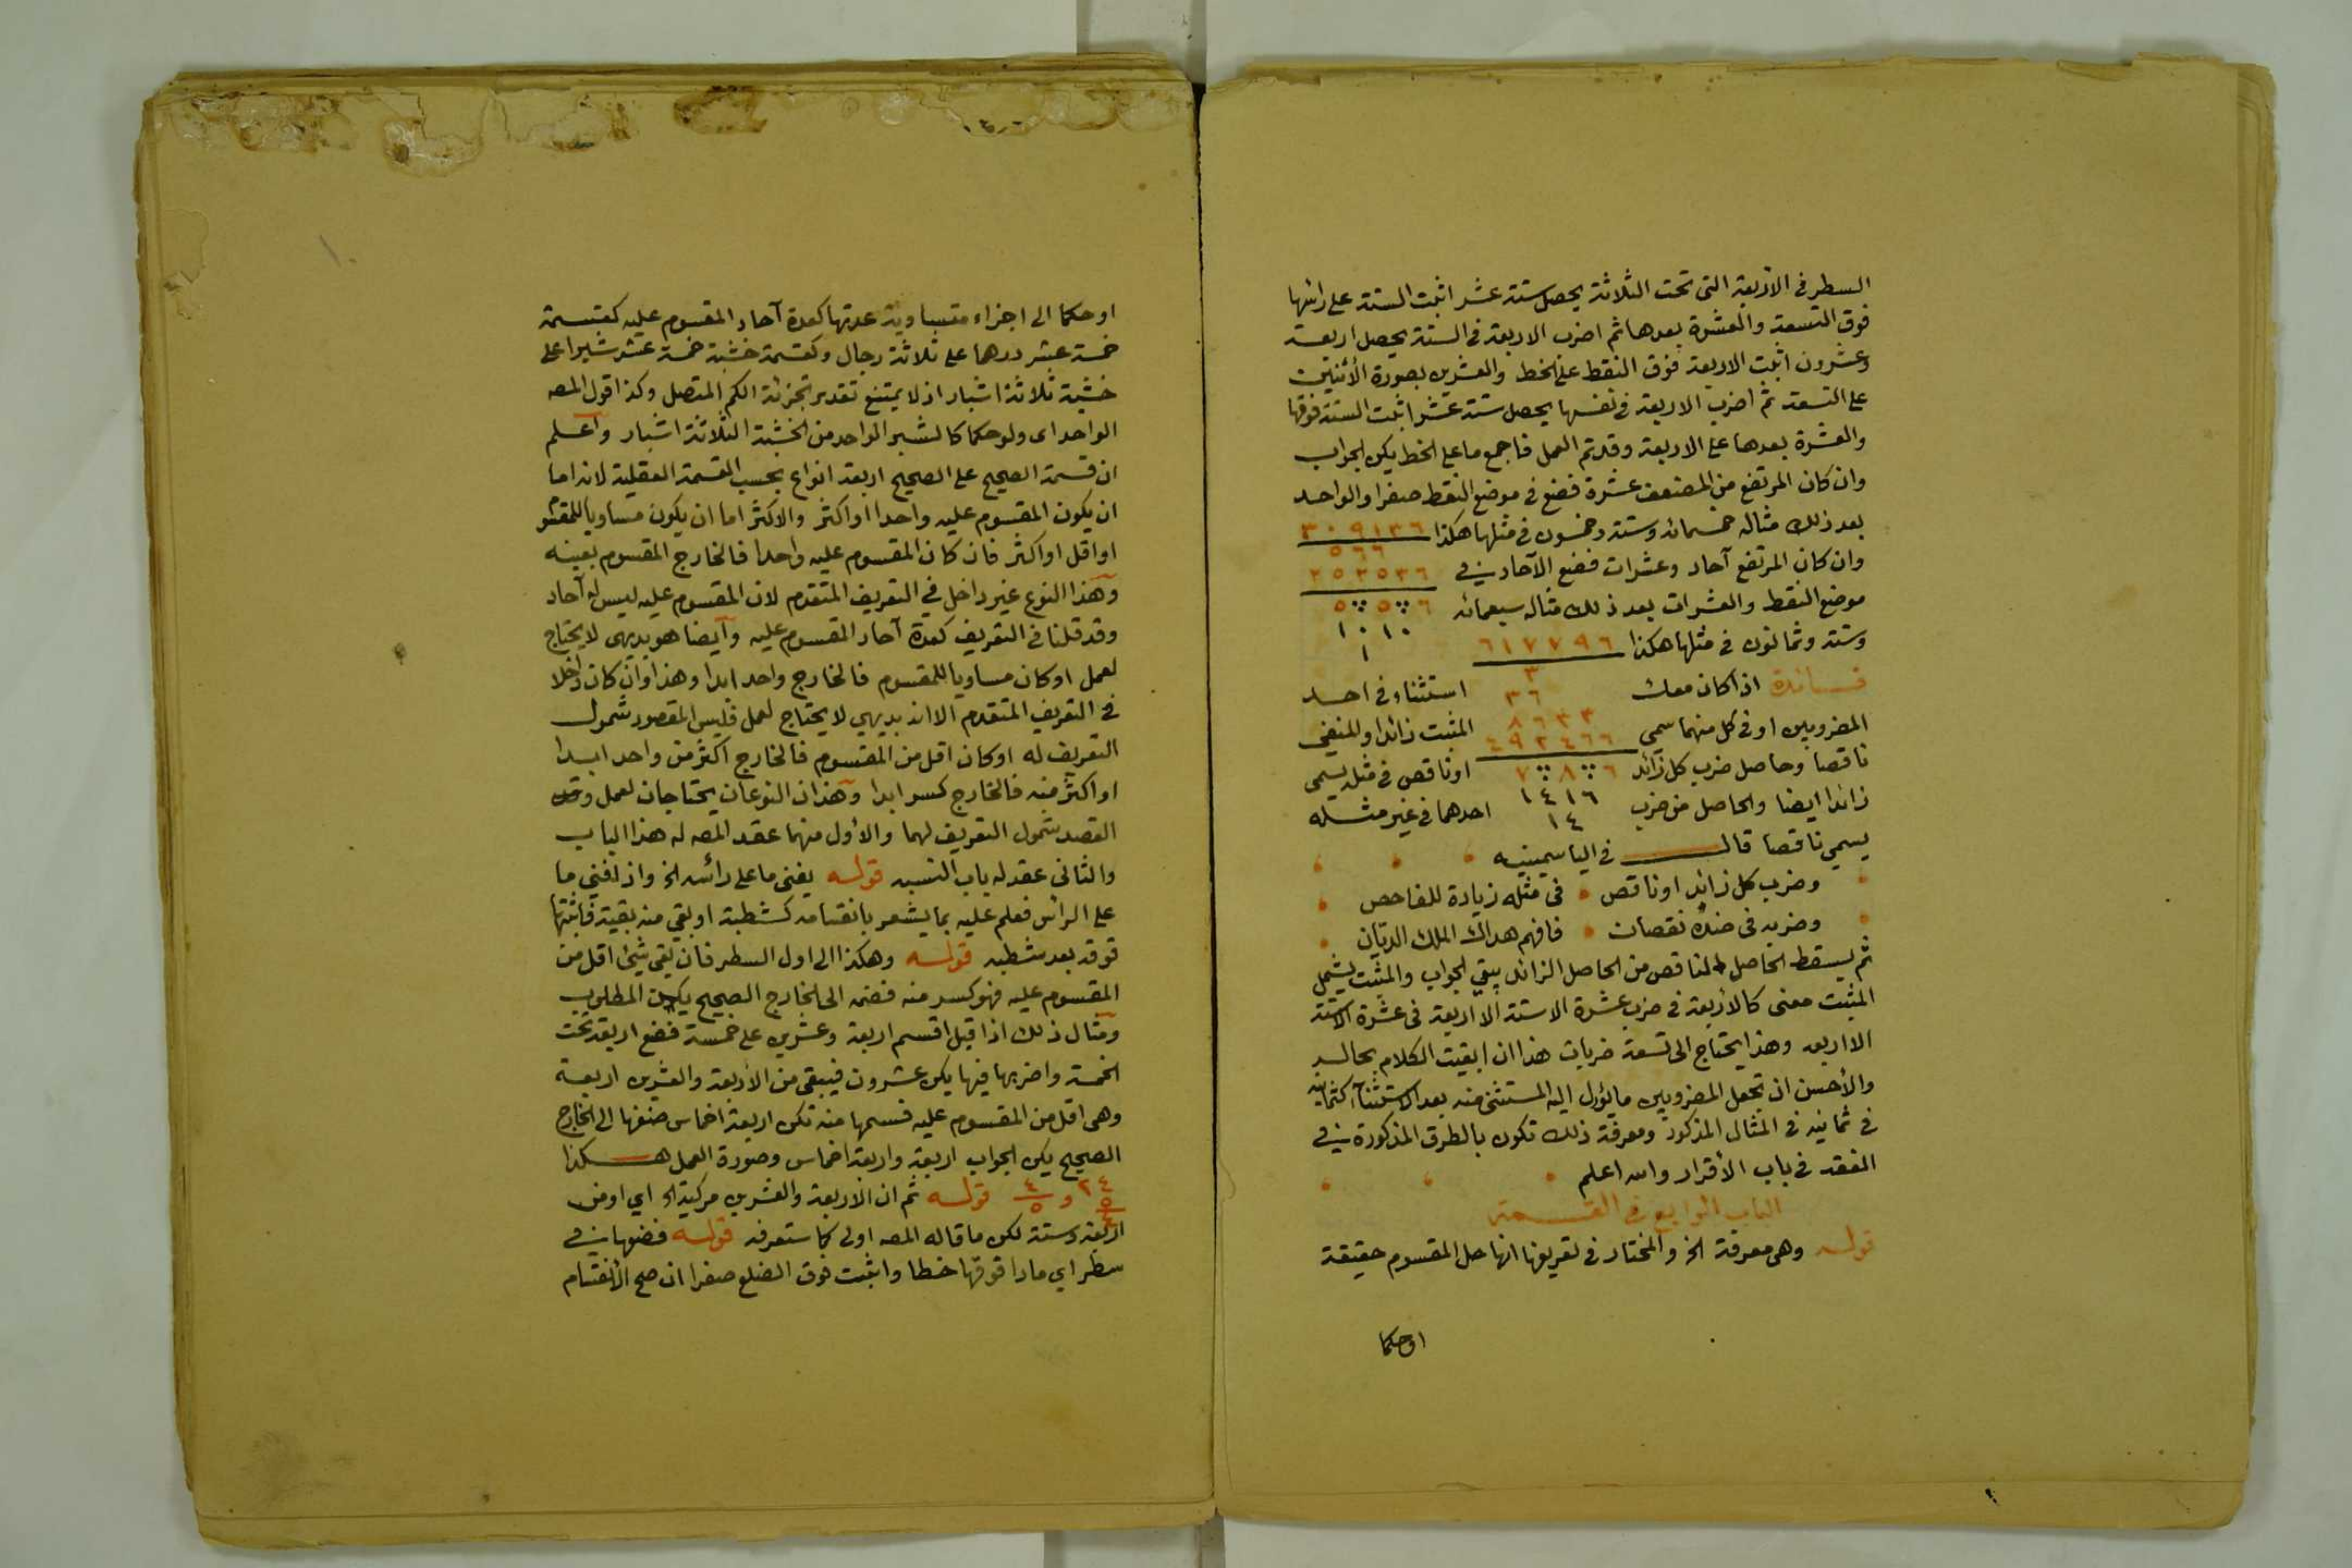 السطر في الاربعة التي تحت الثلاثة يحصل ستة عشر اثبت الستة على رائسها
فوق التسعة والعشرة بعدها ثم اضرب الاربعة في الستة يحصل اربعة
وعشرون اثبت الاربعة فوق النقط على الخط والعشرين بصورة الأثنين
على التسعة ثم اضرب الاربعة في نفسها يحصل ستة عشر اثبت الستة فوقها
والعشرة بعدها على الاربعة وقد تم العمل فاجمع ما على الخط يكن الجواب
وان كان المرتفع من المضعف عشرة فضع في موضع النقط صفرا والواحد
بعد ذلك مثاله خمسمائة وستة وخمسون في مثلها هكذا ٣٠٩١٣٦
٥٦٦
وان كان المرتفع آحاد وعشرات فضع الآحاد في ٢٥٢٥٣٦
موضع النقط والعشرات بعد ذلك مثاله سبعمائة ٥ ٥ ٦
١٠١٠
وستة وثمانون في مثلها هكذا ٦١٧٧٩٦
١
٣
فائدة اذا كان معك ٣٦ استثناء في احد
المضروبين او في كل منهما سمي ٨٦٣٣ المثبت زائدا والمنفي
٤٩٢٤٦٦
ناقصا وحاصل ضرب كل زائد ٧ ٨ ٦ او ناقص في مثله يسمى
زائدا ايضا والحاصل من ضرب ١٤١٦ احدهما في غير مثله
١٤
يسمي ناقصا قال في الياسمينيه
وضرب كل زائد او ناقص في مثله زيادة للفاحص
وضربه في ضده نقصان فافهم هداك الملك الديان
ثم يسقط الحاصل الناقص من الحاصل الزائد يبقي الجواب والمثبت يشمل
المثبت معنى كالاربعة في ضرب عشرة الا ستة الا اربعة في عشرة الا ستة
الا اربعه وهذا يحتاج الى تسعة ضربات هذا ان ابقيت الكلام بحاله
والأحسن ان تجعل المضروبين ما يؤول اليه المستثنى منه بعد الاستثناء كثمانية
في ثمانية في المثال المذكور ومعرفة ذلك تكون بالطرق المذكورة في
الفقه في باب الأقرار والله اعلم
الباب الرابع في القسمة
قوله وهي معرفة الخ والمختار في تعريفها انها حل المقسوم حقيقة
او حكما
او حكما الى اجزاء متساوية عدتها كعدة آحاد المقسوم عليه كقسمة
خمسة عشر درهما على ثلاثة رجال وكقسمة خشبة خمسة عشر شبرا على
خشبة ثلاثة اشبار اذ لا يمتنع تقدير تجزئة الكم المتصل وكذا قول المصه
الواحد اى ولو حكما كالشبر الواحد من الخشبة الثلاثة اشبار وآعلم
ان قسمة الصحيح على الصحيح اربعة انواع بحسب القسمة العقلية لانه اما
ان يكون المقسوم عليه واحدا او اكثر والاكثر اما ان يكون مساويا للمقسوم
او اقل او اكثر فان كان المقسوم عليه واحدا فالخارج المقسوم بعينه
وهذا النوع غير داخل في التعريف المتقدم لان المقسوم عليه ليس له آحاد
وقد قلنا في التعريف كعدة آحاد المقسوم عليه وآيضا هو بديهى لا يحتاج
لعمل او كان مساويا للمقسوم فالخارج واحد ابدا وهذا وان كان داخلا
في التعريف المتقدم الا انه بديهي لا يحتاج لعمل فليس المقصود شمول
التعريف له او كان اقل من المقسوم فالخارج اكثر من واحد ابدا
او اكثر منه فالخارج كسر ابدا وهذان النوعان يحتاجان لعمل وقد
القصد شمول التعريف لهما والأول منهما عقد المصه له هذا الباب
والثانى عقد له باب التسبه قوله يفنى ما على رائسه الخ واذا فني ما
على الرائس فعلم عليه بما يشعر بانقسامه كشطبة او بقي منه بقية فاثبتها
فوقه بعد شطبه قوله وهكذا الى اول السطر فان بقي شئ اقل من
المقسوم عليه فهو كسر منه فضمه الى الخارج الصحيح يكن المطلوب
ومثال ذلك اذا قيل اقسم اربعة وعشرين على خمسة فضع اربعة تحت
الخمسة واضربها فيها يكن عشرون فيبقى من الاربعة والعشرين اربعة
وهى اقل من المقسوم عليه فسمها منه تكن اربعة اخماس ضفها الى الخارج
الصحيح يكن الجواب اربعة واربعة اخماس وصورة العمل هكذا
٢٤ ٥ ٤ و ٤ ٥ قوله ثم ان الاربعة والعشرين مركبة الخ اي او من
اربعة وستة لكن ما قاله المصه اولى كما ستعرفه قوله فضعها في
سطر اي مادا فوقها خطا واثبت فوق الضلع صفرا ان صح الأنقسام